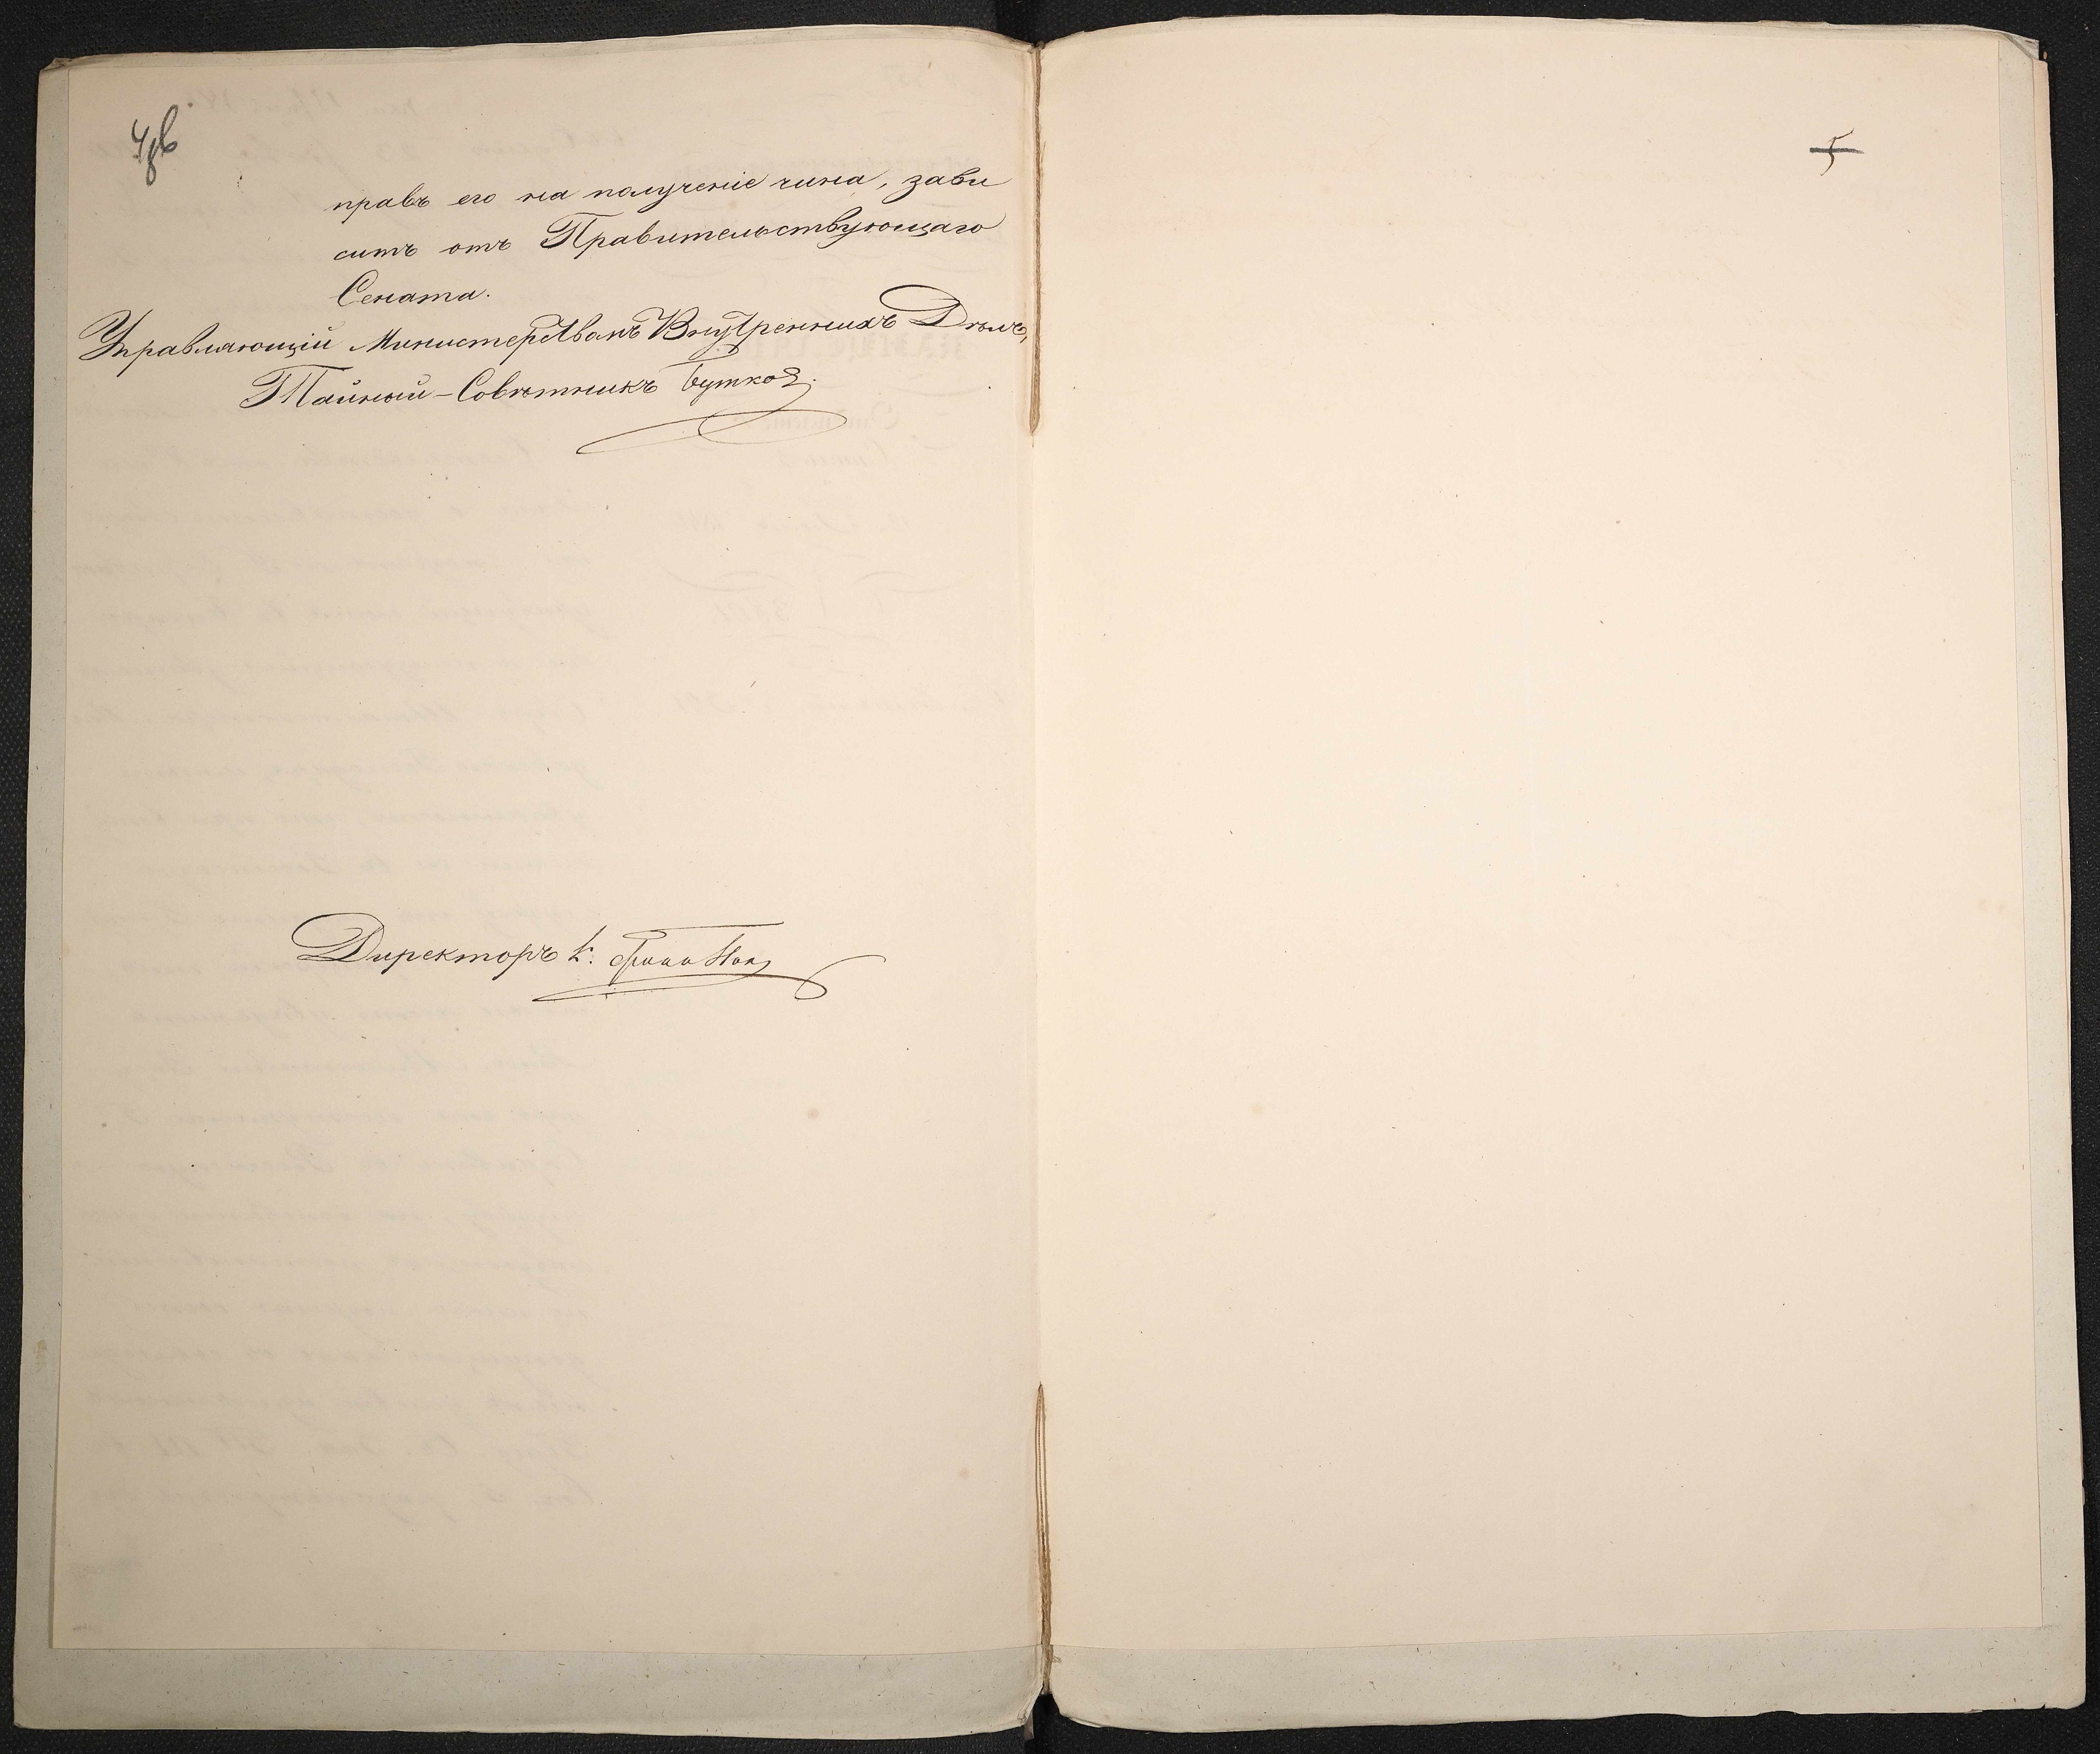 4об
правъ его на полученіе чина, зави
ситъ отъ Правительствующаго
Сената.
Управляющій Министерствомъ Внутреннихъ Дѣлъ,
Тайный-Совѣтникъ Бутков
Директоръ К.
5